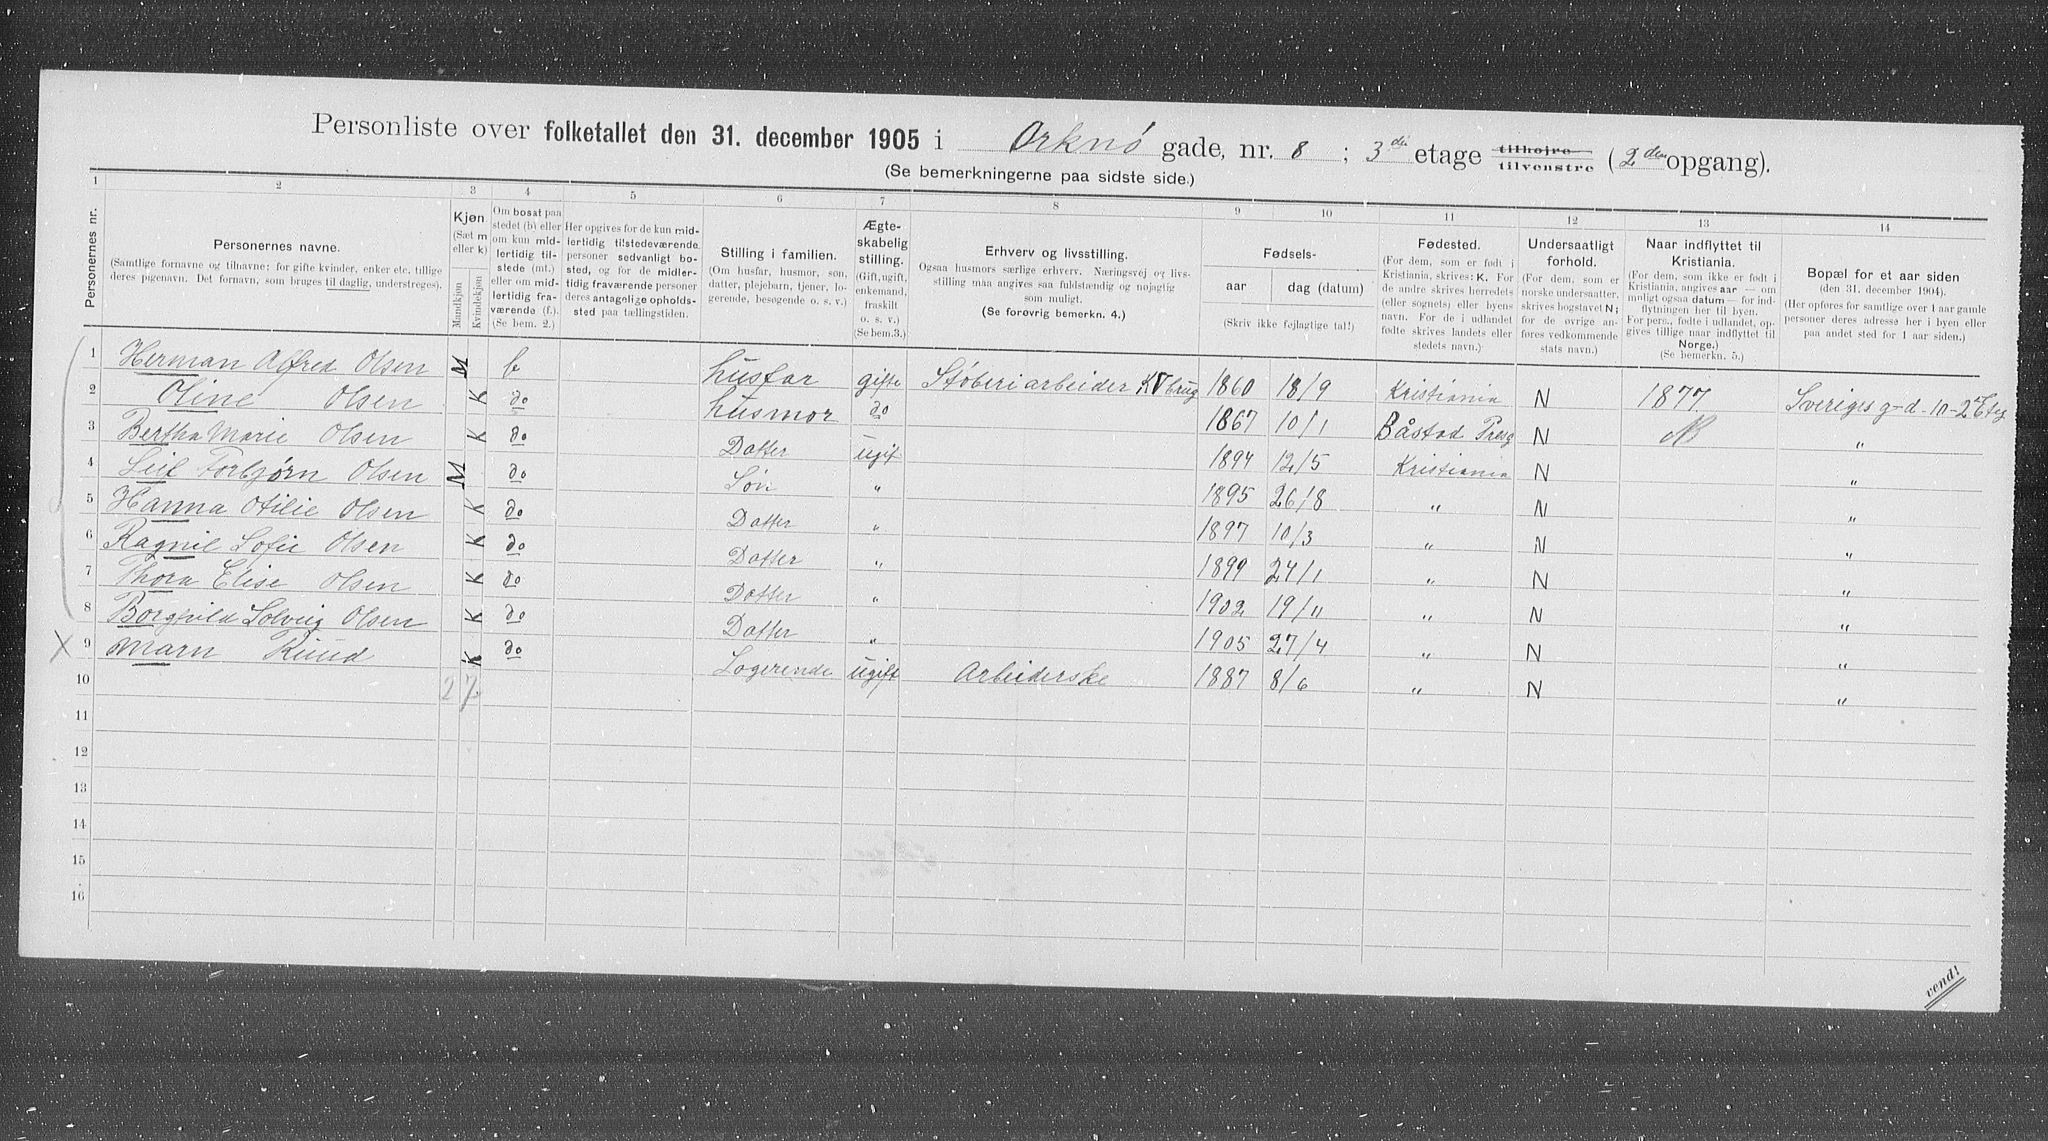 Personliste over folketallet den 31. december 1905 i Orknø gade, nr. 8 ; 3die etage tilhøjre tilvenstre (2den opgang).
(Se bemerkningerne paa sidste side.)
1 2 3 4 5 6 7 8 9 10 11 12 13 14
Personernes nr.
Personernes navne.
(Samtlige fornavne og tilnavne; for gifte kvinder, enker etc. tillige deres pigenavn. Det fornavn, som bruges til daglig, understreges).
Kjøn.
(Sæt m eller k)
Mandkjøn
Kvindekjøn.
Om bosat paa stedet (b) eller om kun midlertidig tilstede (mt.) eller om midlertidig fraværende (f.). (Se bem. 2.)
Her opgives for de kun midlertidig tilstedeværende personer sedvanlig bosted, og for de midlertidig fraværende personer deres antagelige opholdssted paa tællingstiden.
Stilling i familien.
(Om husfar, husmor, søn, datter, plejebarn, tjener, logerende, besøgende o. s. v.)
Ægteskabelig stilling.
(Gift, ugift, enkemand, fraskilt o. s. v.)
(Se bem. 3.)
Erhverv og livsstilling.
Ogsaa husmors særlige erhverv. Næringsvej og livsstilling maa angives saa fuldstændig og nøjagtig som muligt.
(Se forøvrig bemerkn. 4.)
Fødsels-
aar
dag (datum)
(Skriv ikke fejlagtige tal!)
Fødested.
(For dem, som er født i Kristiania, skrives: K. For de andre skrives herredets (eller sognets) eller byens navn. For de i udlandet fødte skrives landets eller stedets navn.)
Undersaatligt forhold.
(For dem, som er norske undersaatter, skrives bogstavet N; for de øvrige anføres vedkommende stats navn.)
Naar indflyttet til Kristiania.
(For dem, som ikke er født i Kristiania, angives aar — om muligt ogsaa datum — for indflytningen her til byen. For pers., fødte i udlandet, opgives tillige naar indflyttet til Norge.)
(Se bemerkn. 5.)
Bopæl for et aar siden
(den 31. december 1904).
(Her opføres for samtlige over 1 aar gamle personer deres adresse her i byen eller paa andet sted for 1 aar siden.)
1 Herman Alfred Olsen M b husfar gifte Støberiarbeider KV brug 1860 18/9 Kristiania N 1877 Sveriges g-d. 10-2 Etg
2 Oline Olsen K do husmor do 1867 10/1 Båstad Presg N "
3 Bertha Marie Olsen K do Datter ugift 1894 12/5 Kristiania N "
4 Leif Torbjørn Olsen M do Søn " 1895 26/8 " N "
5 Hanna Otilie Olsen K do Datter " 1897 10/3 " N "
6 Ragnil Sofie Olsen K do Datter " 1899 24/1 " N "
7 Thora Elise Olsen K do Datter " 1902 19/11 " N "
8 Borghild Solveig Olsen K do Datter " 1905 27/4 " N "
X 9 Marn Ruud K do Logerende ugift Arbeiderske 1887 8/6 " N "
10 2 7
11
12
13
14
15
16
vend!